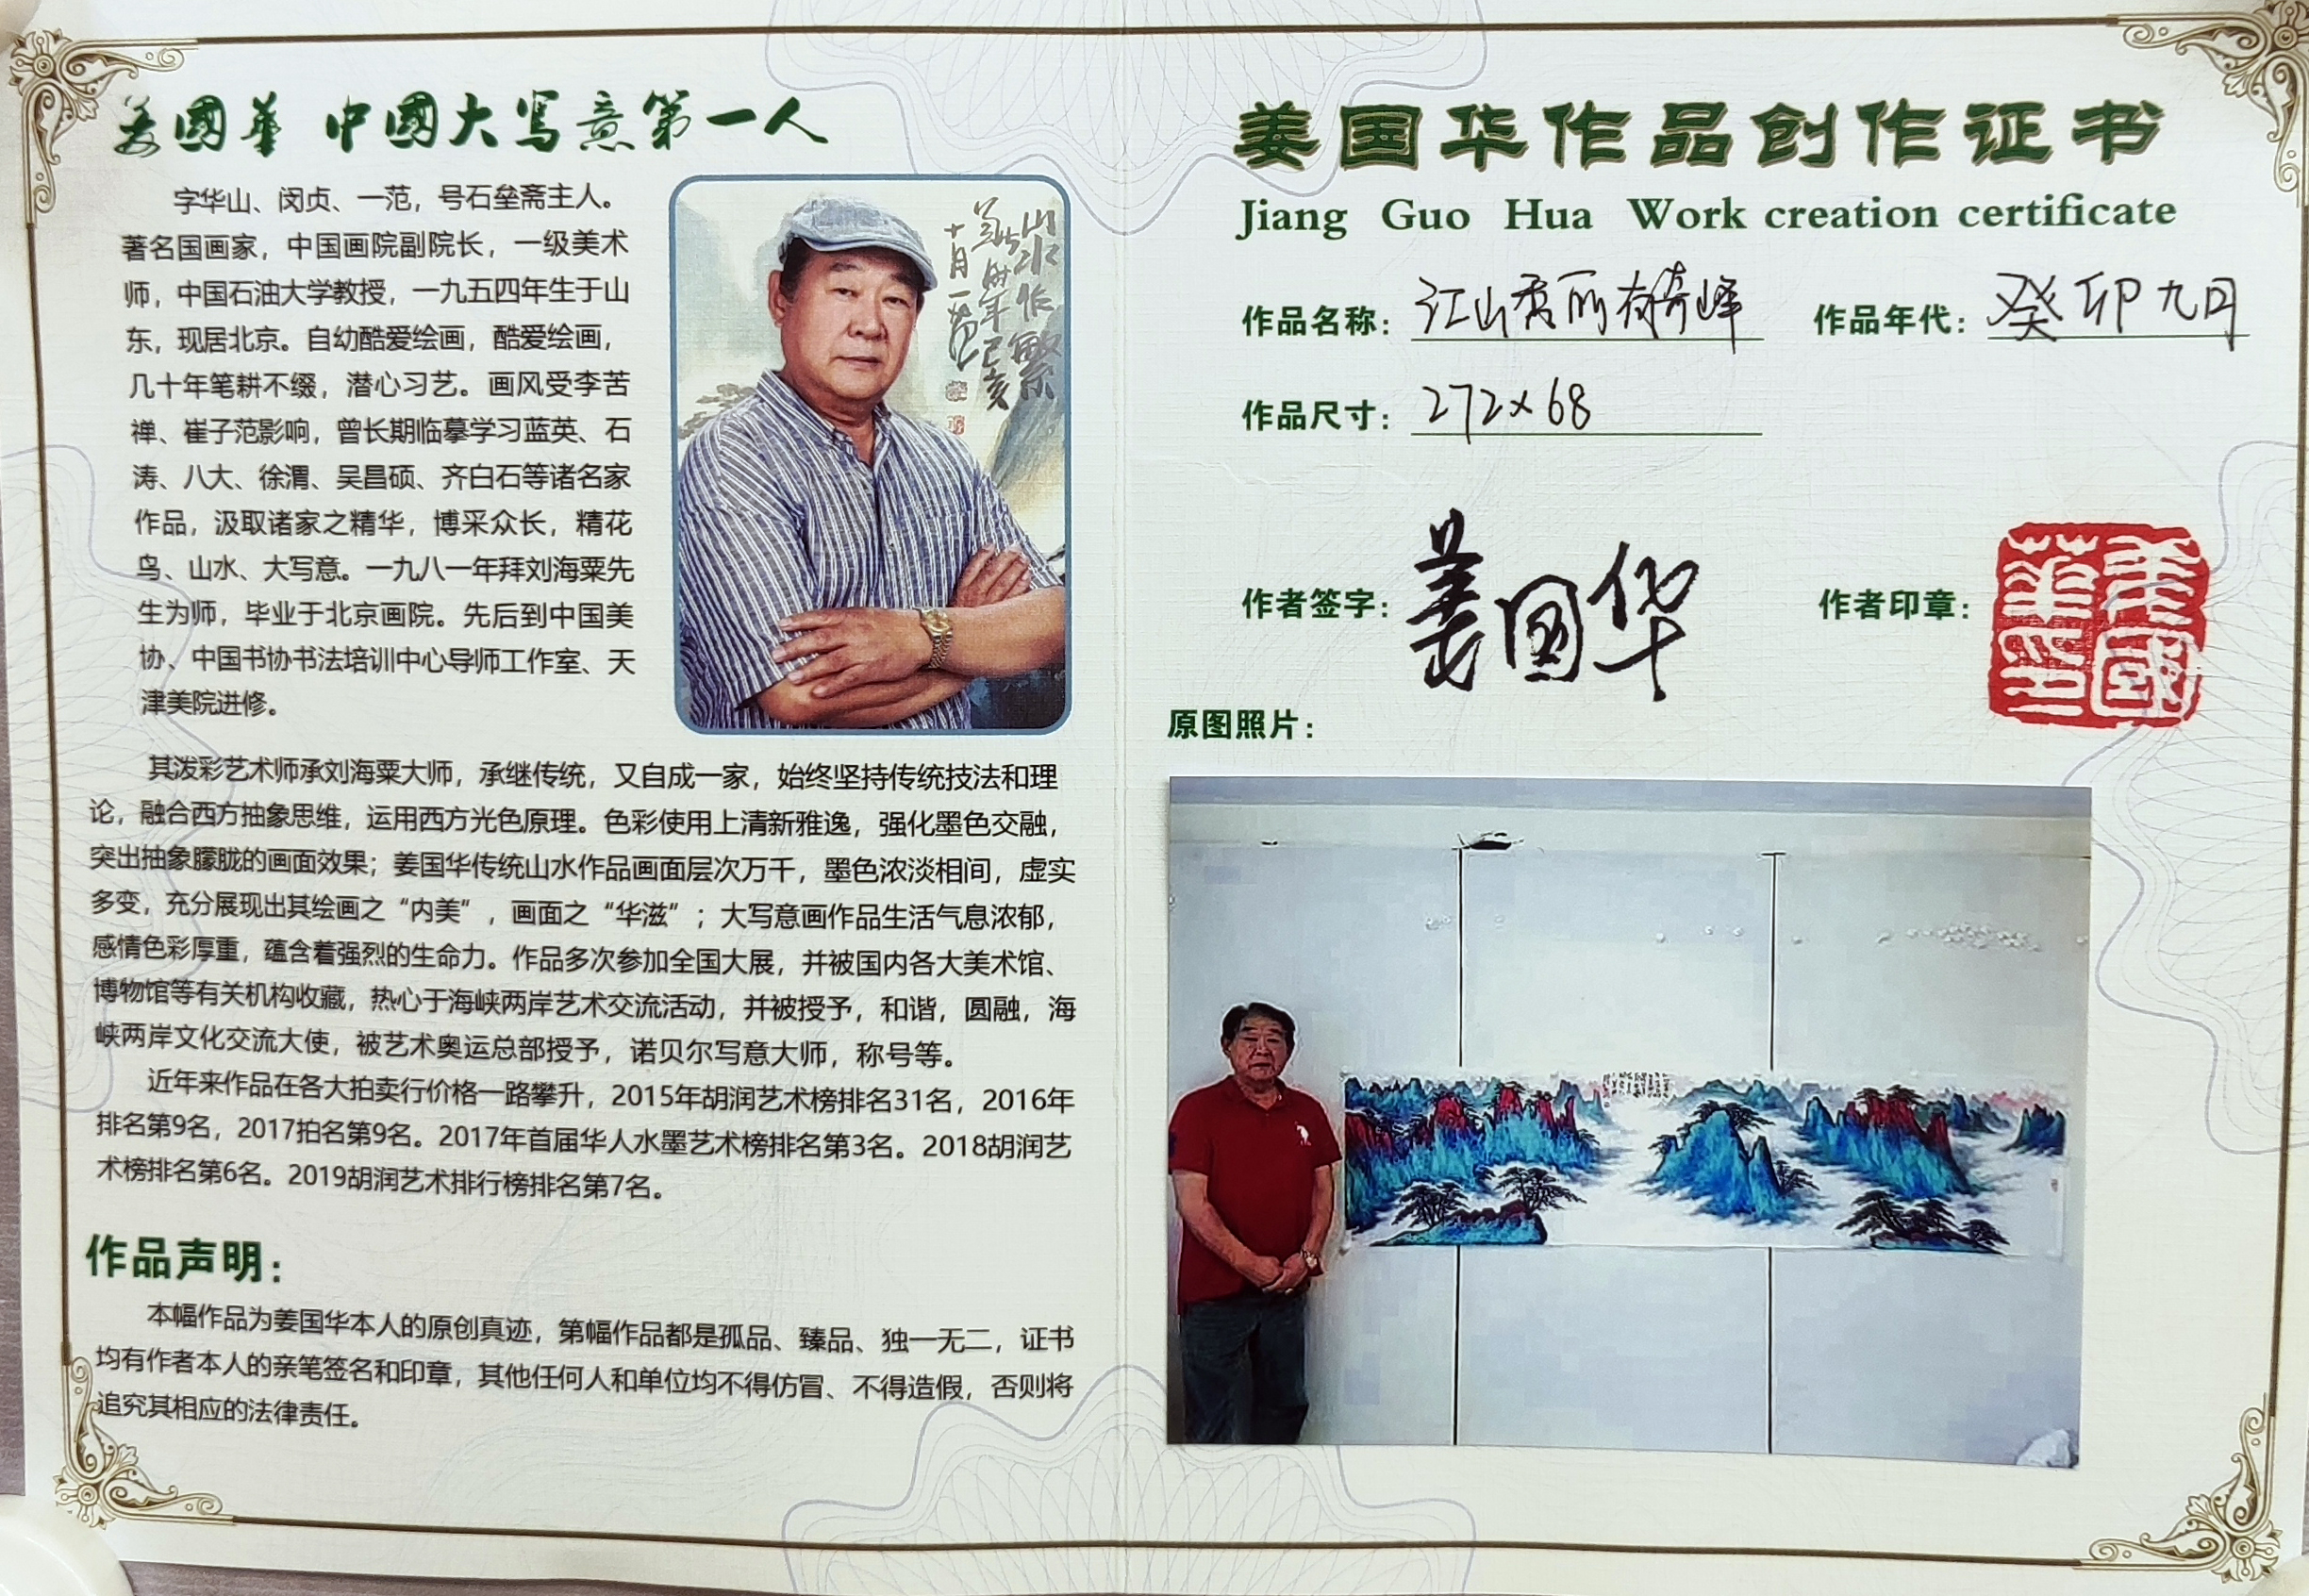 姜國華 中國大写意第一人
字华山、闵贞、一范，号石垒斋主人。
著名国画家，中国画院副院长，一级美术
师，中国石油大学教授，一九五四年生于山
东，现居北京。自幼酷爱绘画，酷爱绘画，
几十年笔耕不缀，潜心习艺。画风受李苦
禅、崔子范影响，曾长期临摹学习蓝英、石
涛、八大、徐渭、吴昌硕、齐白石等诸名家
作品，汲取诸家之精华，博采众长，精花
鸟、山水、大写意。一九八一年拜刘海粟先
生为师，毕业于北京画院。先后到中国美
协、中国书协书法培训中心导师工作室、天
津美院进修。
其泼彩艺术师承刘海粟大师，承继传统，又自成一家，始终坚持传统技法和理
论，融合西方抽象思维，运用西方光色原理。色彩使用上清新雅逸，强化墨色交融，
突出抽象朦胧的画面效果；姜国华传统山水作品画面层次万千，墨色浓淡相间，虚实
多变，充分展现出其绘画之“内美”，画面之“华滋”；大写意画作品生活气息浓郁，
感情色彩厚重，蕴含着强烈的生命力。作品多次参加全国大展，并被国内各大美术馆、
博物馆等有关机构收藏，热心于海峡两岸艺术交流活动，并被授予，和谐，圆融，海
峡两岸文化交流大使，被艺术奥运总部授予，诺贝尔写意大师，称号等。
近年来作品在各大拍卖行价格一路攀升，2015年胡润艺术榜排名31名，2016年
排名第9名，2017拍名第9名。2017年首届华人水墨艺术榜排名第3名。2018胡润艺
术榜排名第6名。2019胡润艺术排行榜排名第7名。
作品声明：
本幅作品为姜国华本人的原创真迹，第幅作品都是孤品、臻品、独一无二，证书
均有作者本人的亲笔签名和印章，其他任何人和单位均不得仿冒、不得造假，否则将
追究其相应的法律责任。
姜国华作品创作证书
Jiang Guo Hua Work creation certificate
作品名称：江山秀丽有奇峰 作品年代：癸卯九月
作品尺寸：272×68
作者签字：姜国华 作者印章：姜國華印
原图照片：